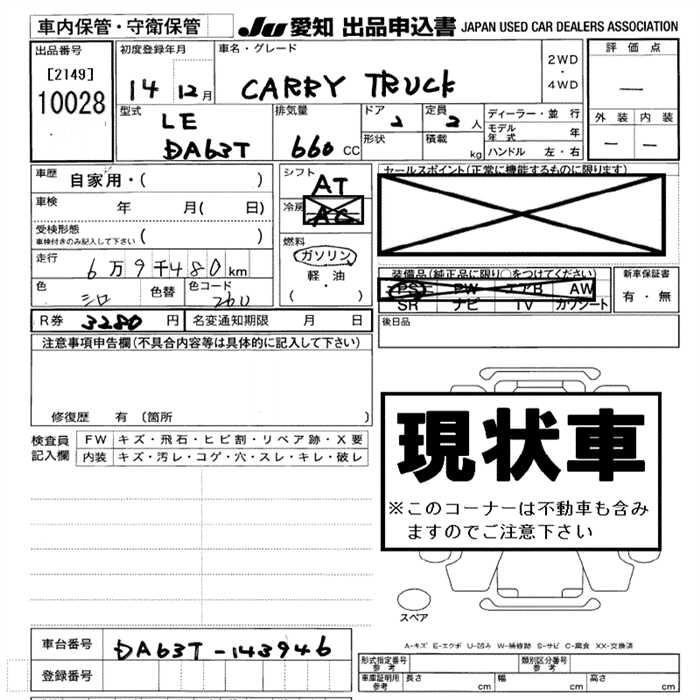 車内保管・守衛保管
JU 愛知 出品申込書 JAPAN USED CAR DEALERS ASSOCIATION
出品番号
[2149]
10028
初度登録年月
14 12月
車名・グレード
CARRY TRUCK
2WD
・
4WD
評価点
—
外装 内装
— —
型式
LE
DA63T
排気量
660 CC
ドア
2
形状
定員
2 人
積載
kg
ディーラー・並行
モデル年式 年
ハンドル 左・右
車歴 自家用・( )
車検 年 月( 日)
受検形態
車検付きのみ記入して下さい ( )
走行 6万9千480km
色 シロ 色替 色コード 26U
シフト
AT
冷房 AC
燃料
ガソリン
軽・油
( ・ )
セールスポイント(正常に機能するものに限ります)
装備品(純正品に限り○をつけてください)
PS PW エアB AW
SR ナビ TV カワシート
新車保証書
有・無
R券 3280 円 名変通知期限 月 日
後日品
注意事項申告欄(不具合内容等は具体的に記入して下さい)
修復歴 有 〔箇所 〕
検査員
記入欄
FW キズ・飛石・ヒビ割・リペア跡・X要
内装 キズ・汚レ・コゲ・穴・スレ・キレ・破レ
現状車
※このコーナーは不動車も含み
ますのでご注意下さい
スペア
A-キズ E-エクボ U-凹み W-補修跡 S-サビ C-腐食 XX-交換済
車台番号 DA63T-143946
登録番号
形式指定番号
参考
類別区分番号
参考
車庫証明用
参考
長さ cm 幅 cm 高さ cm